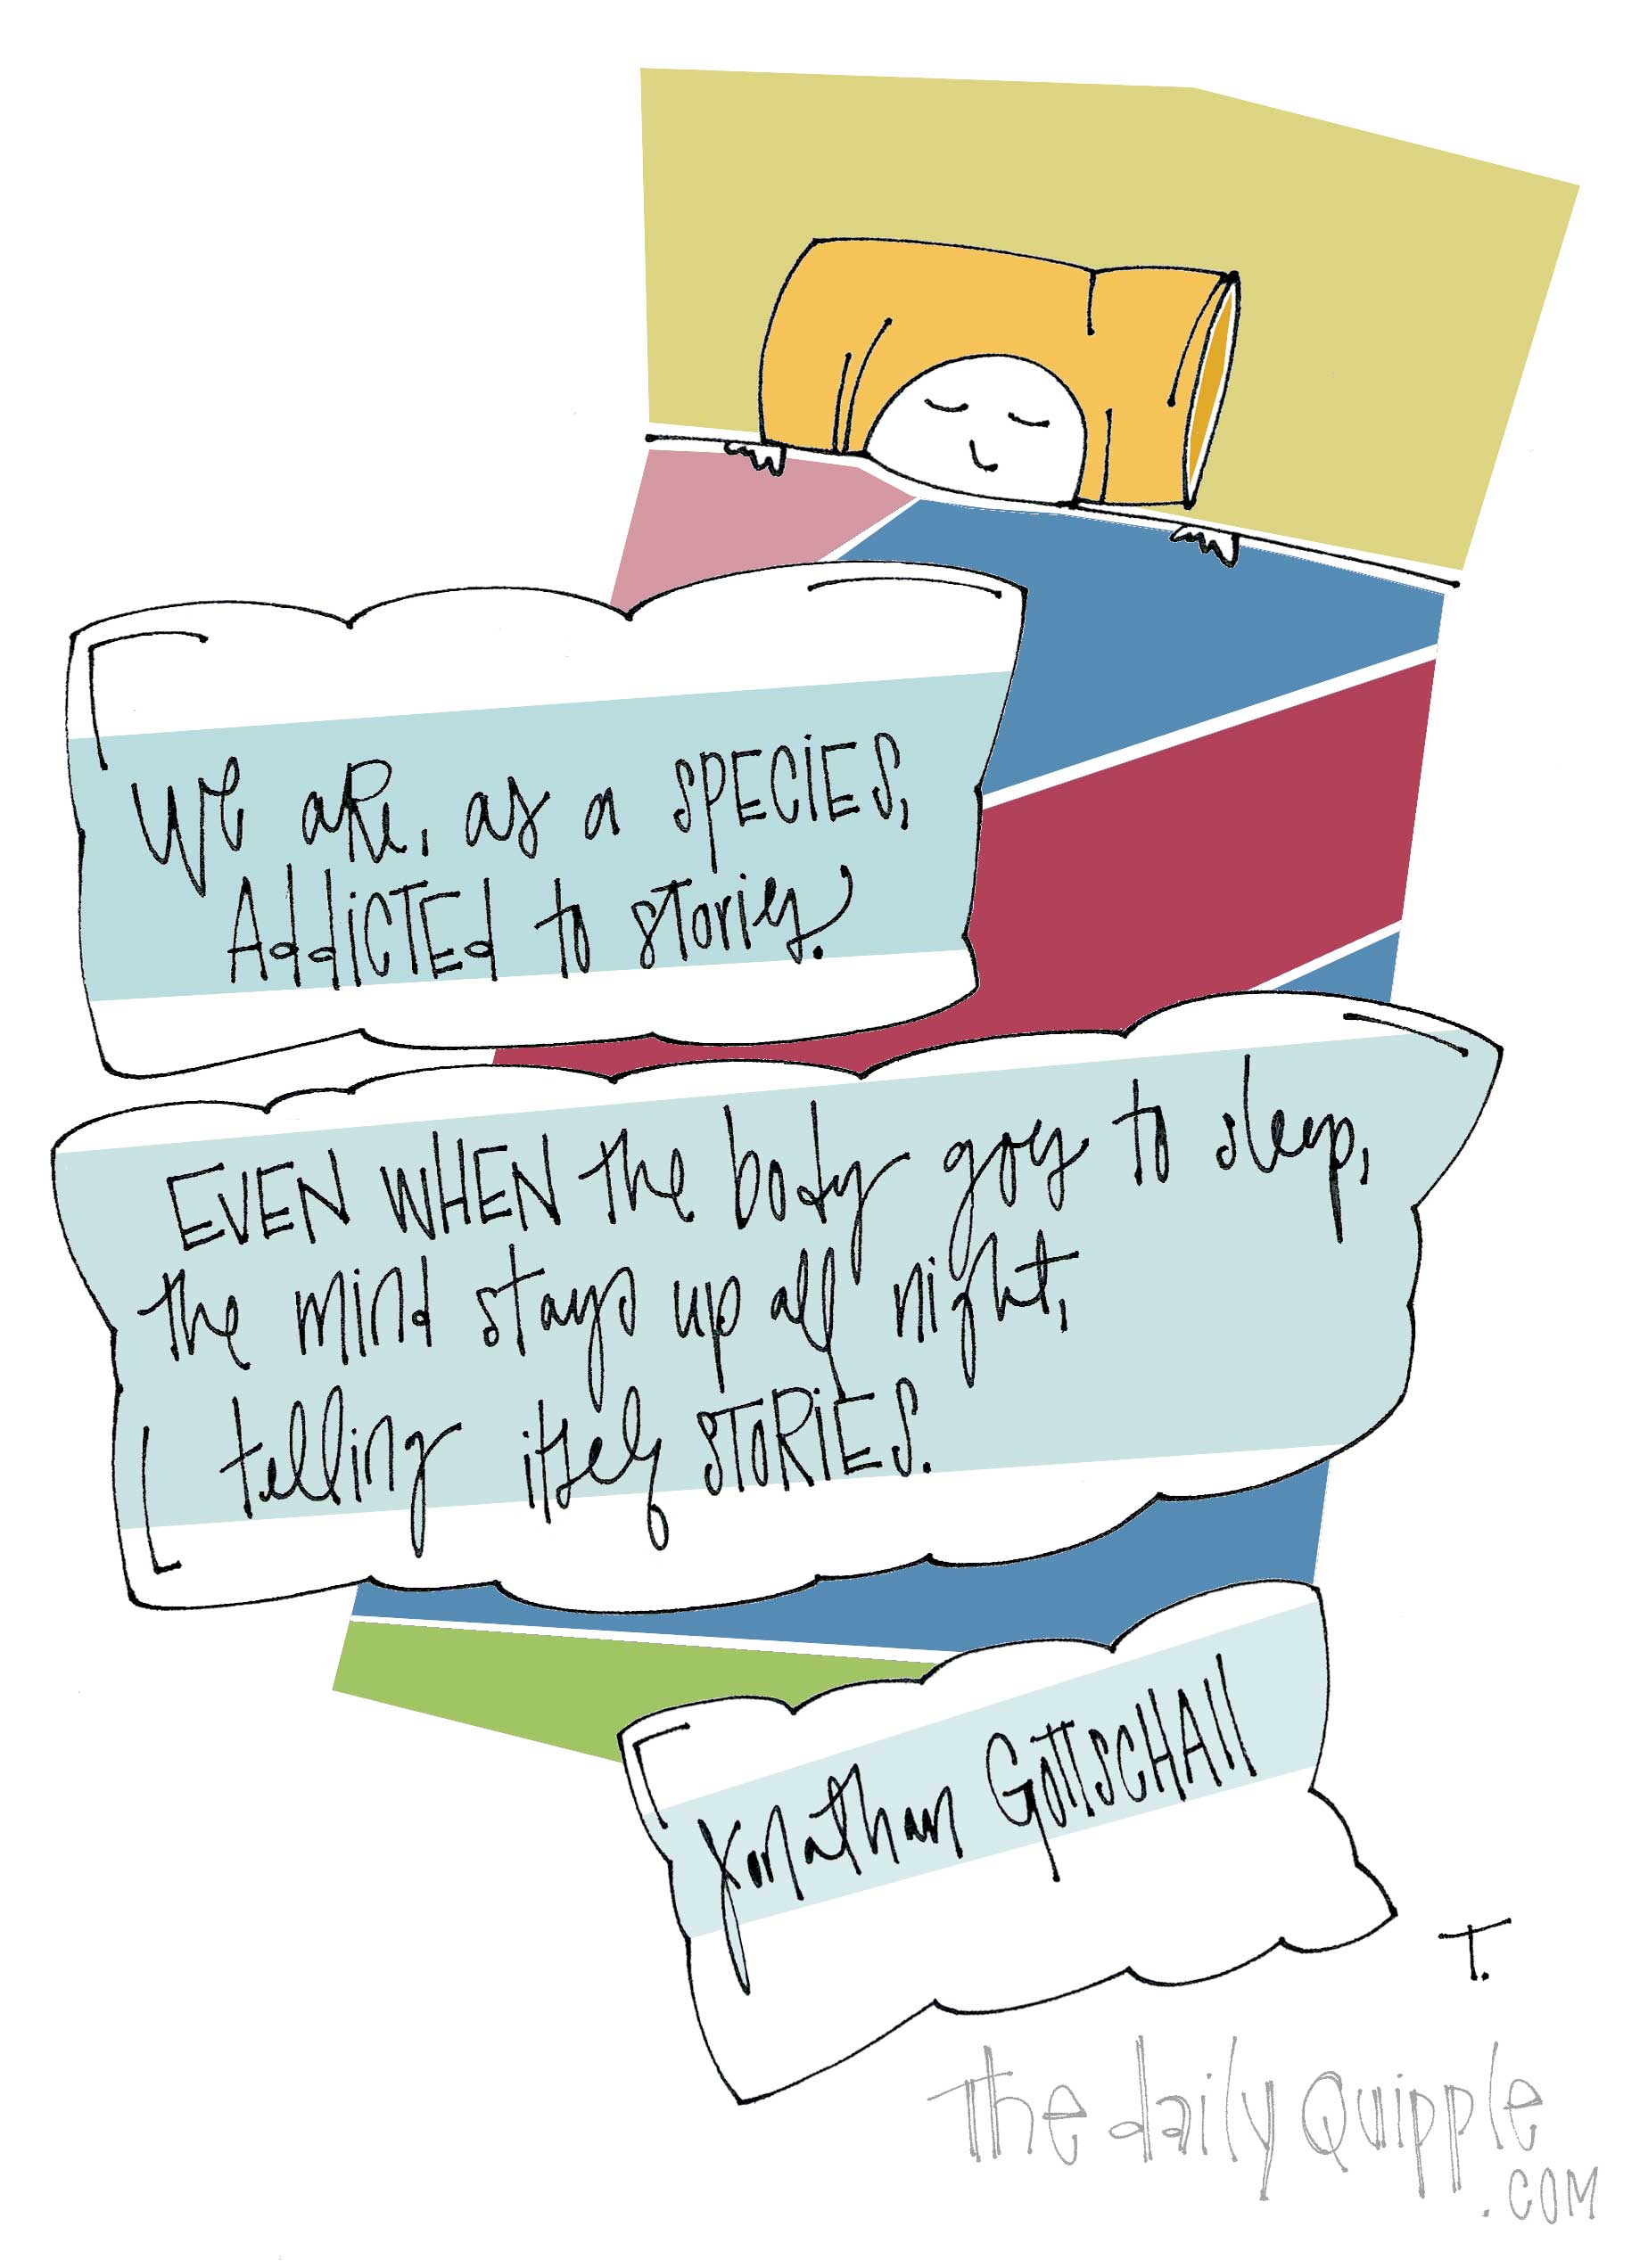 We aRe, as a SPECiES,
AddiCTEd to stories.
EVEN WHEN the body goes to sleep,
the mind stays up all night,
telling itself SToRiES.
Jonathan GoTTSCHAll
T.
The daily Quipple
.COM